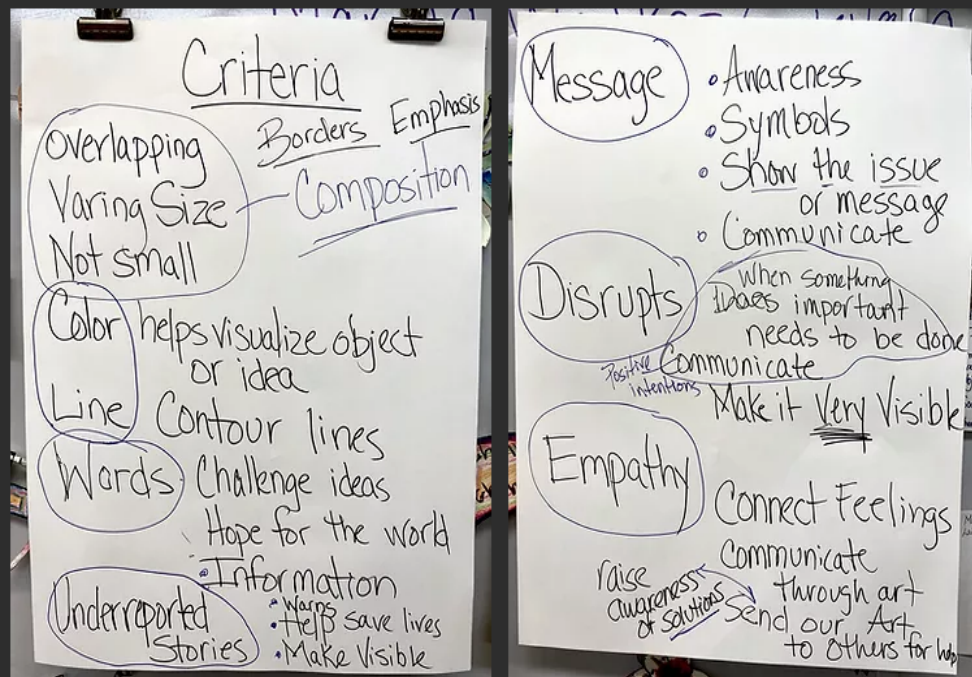 Criteria
Borders Emphasis
Overlapping
Varing Size
Not small
Composition
Color helps visualize object
or idea
Line Contour lines
Words Challenge ideas
Hope for the world
• Information
Underreported
Stories
• Warns
• Help save lives
• Make Visible
Message
• Awareness
• Symbols
• Show the issue
or message
• Communicate
Disrupts
When something
important
needs to be done
Communicate
Positive
intentions
Make it Very Visible
Empathy
Connect Feelings
Communicate
through art
raise
awareness
of solutions
Send our Art
to others for help